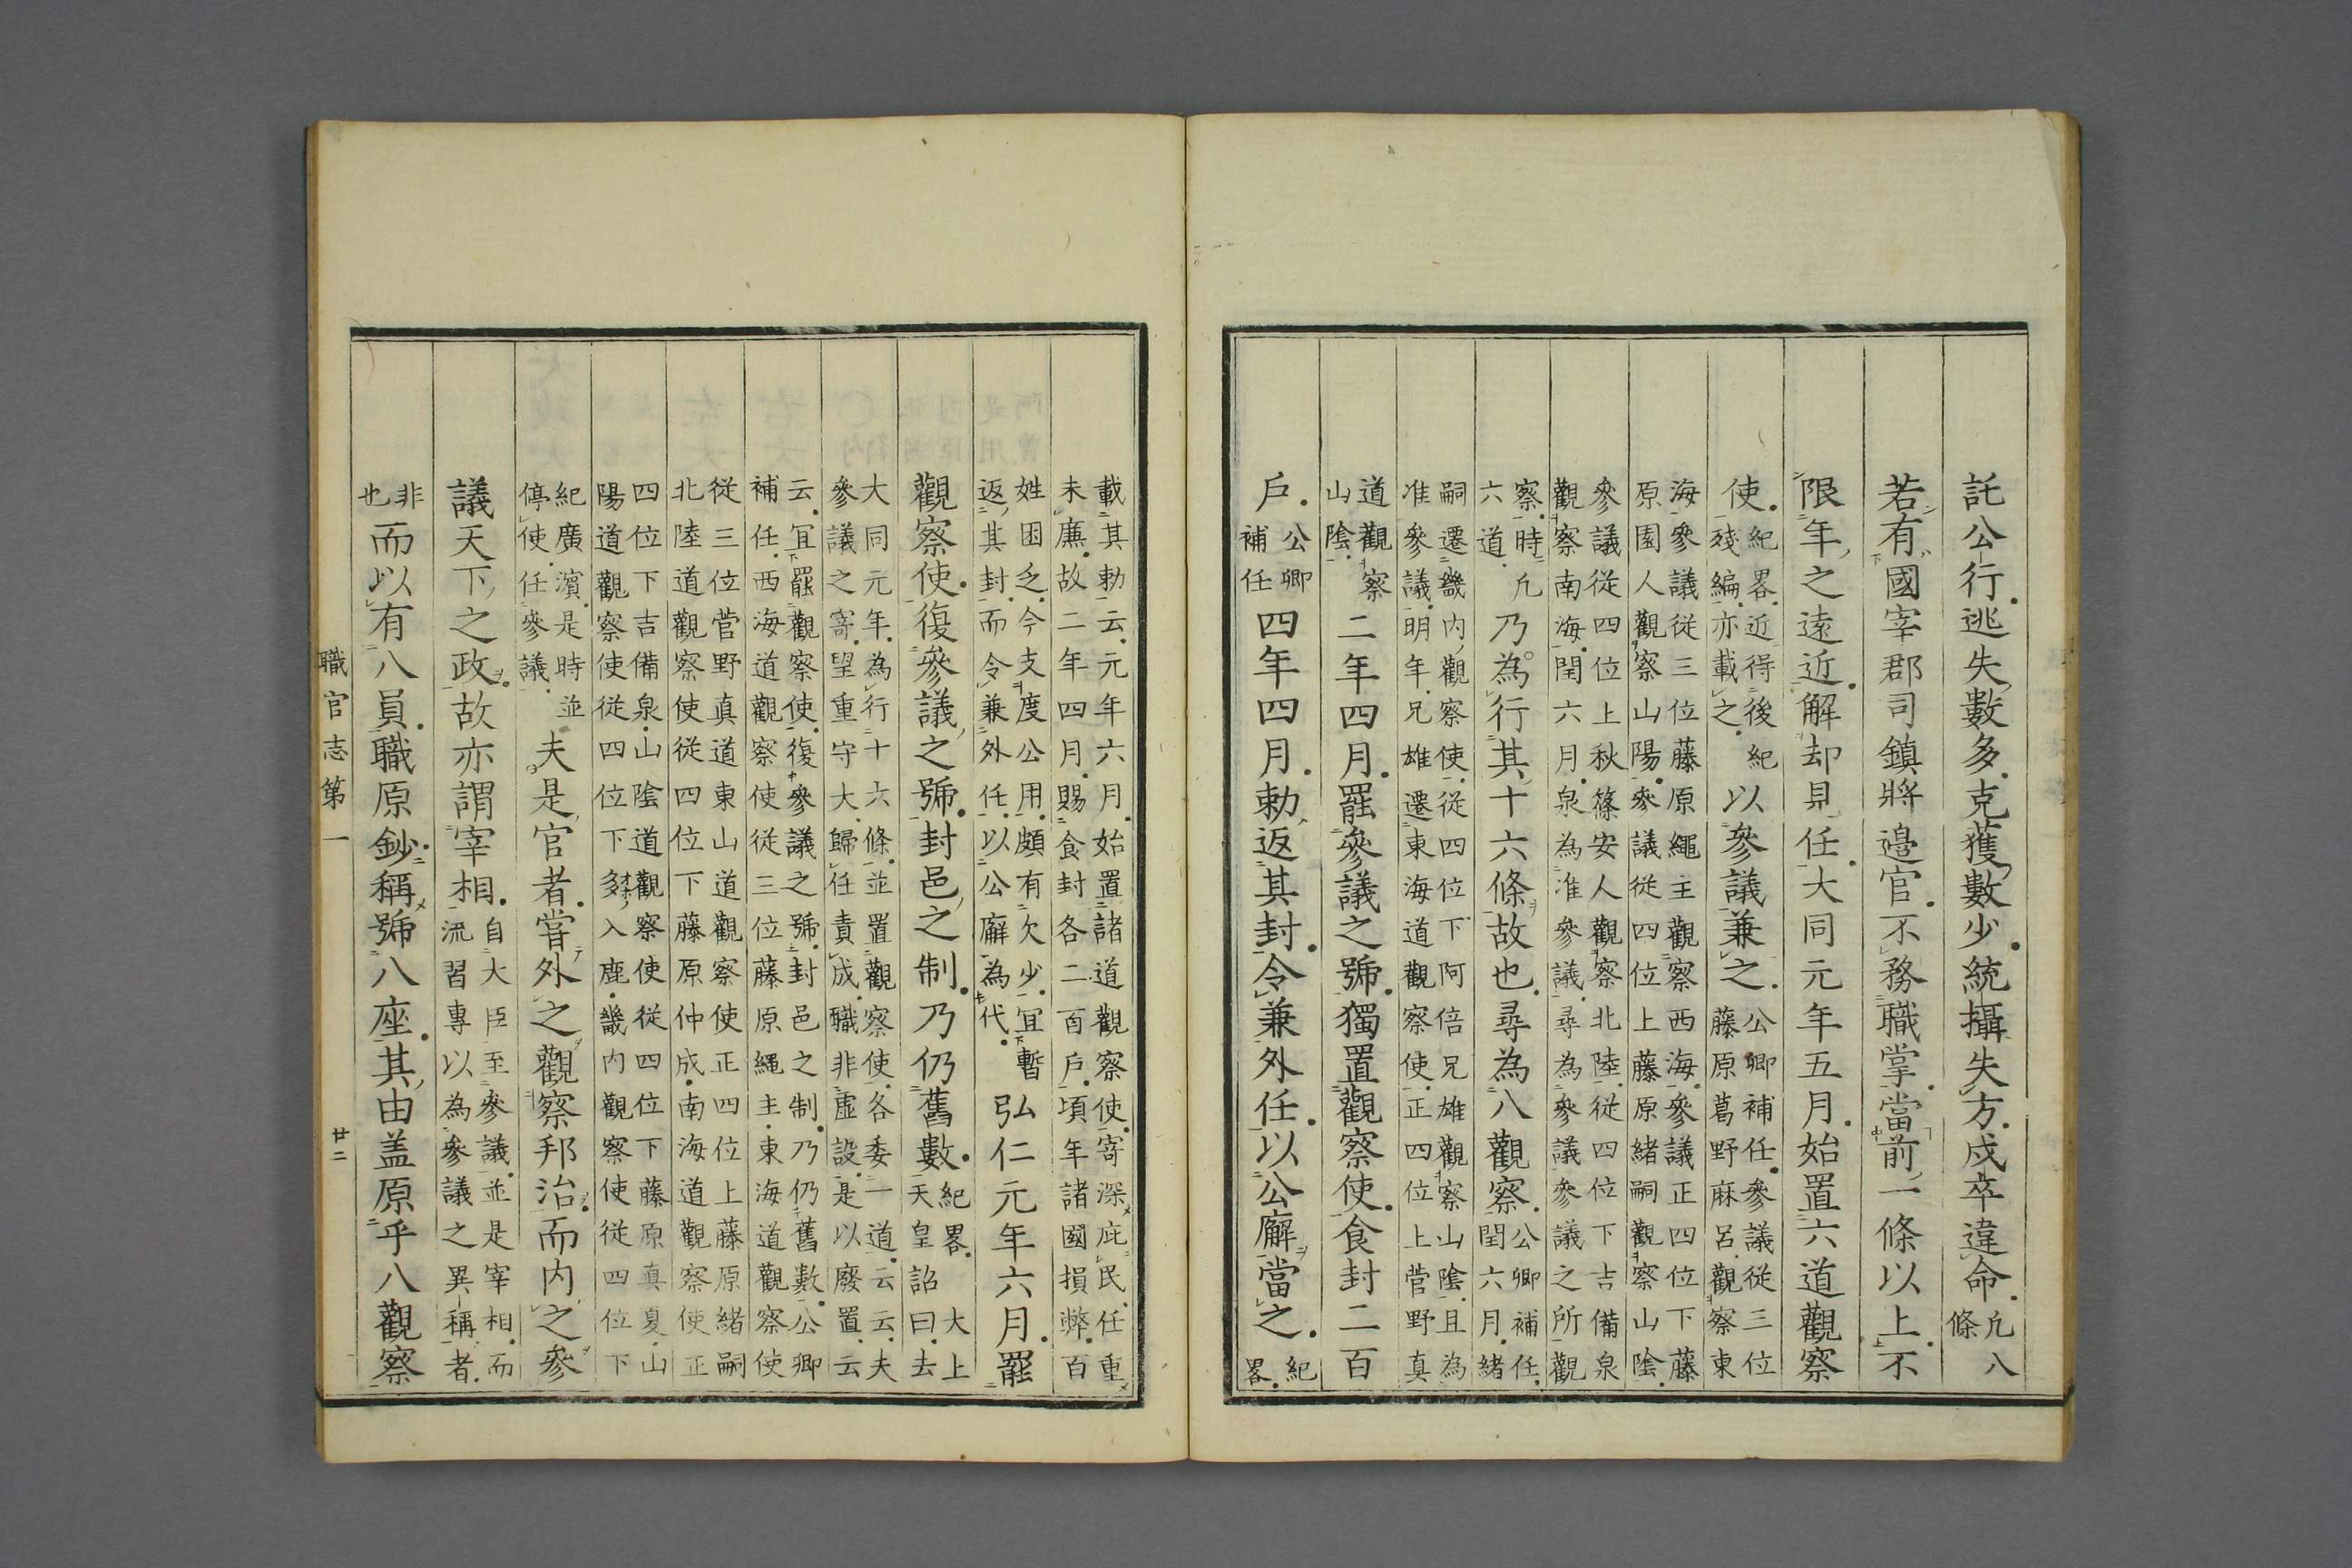 託公行逃失數多克獲數少統攝失方戍卒違命凢八條
若有國宰郡司鎮將邉官不務職掌當前一條以上不
限年之遠近解却見任大同元年五月始置六道觀察
使紀畧近得後紀殘編亦載之以參議兼之公卿補任參議從三位藤原葛野麻呂觀察東
海參議從三位藤原繩主觀察西海參議正四位下藤原園人觀察山陽參議從四位上藤原緒嗣觀察山陰
參議從四位上秋篠安人觀察北陸從四位下吉備泉觀察南海閏六月泉為准參議尋為參議參議之所觀
察時凢六道乃為行其十六條故也尋為八觀察公卿補任閏六月緒
嗣遷畿內觀察使從四位下阿倍兄雄觀察山陰且為准參議明年兄雄遷東海道觀察使正四位上菅野真
道觀察山陰二年四月罷參議之號獨置觀察使食封二百
戶公卿補任四年四月勅返其封令兼外任以公廨當之紀畧
載其勅云元年六月始置諸道觀察使寄深庇民任重未廉故二年四月賜食封各二百戶頃年諸國損弊百
姓困乏今支度公用頗有欠少冝暫返其封而令兼外任以公廨為代弘仁元年六月罷
觀察使復參議之號封邑之制乃仍舊數紀畧天皇詔曰大上去
大同元年為行十六條並置觀察使各委一道云云夫參議之寄望重守大歸任責成職非虛設是以廢置云
云冝罷觀察使復參議之號封邑之制乃仍舊數公卿補任西海道觀察使從三位藤原繩主東海道觀察使
從三位菅野真道東山道觀察使正四位上藤原緒嗣北陸道觀察使從四位下藤原仲成南海道觀察使正
四位下吉備泉山陰道觀察使從四位下藤原真夏山陽道觀察使從四位下多入鹿畿內觀察使從四位下
紀廣濵是時並停使任參議夫是官者甞外之觀察邦治而内之參
議天下之政故亦謂宰相自大臣至參議並是宰相而流習專以為參議之異稱者
非也而以有八員職原鈔稱號八座其由盖原乎八觀察
職官志第一
廿二